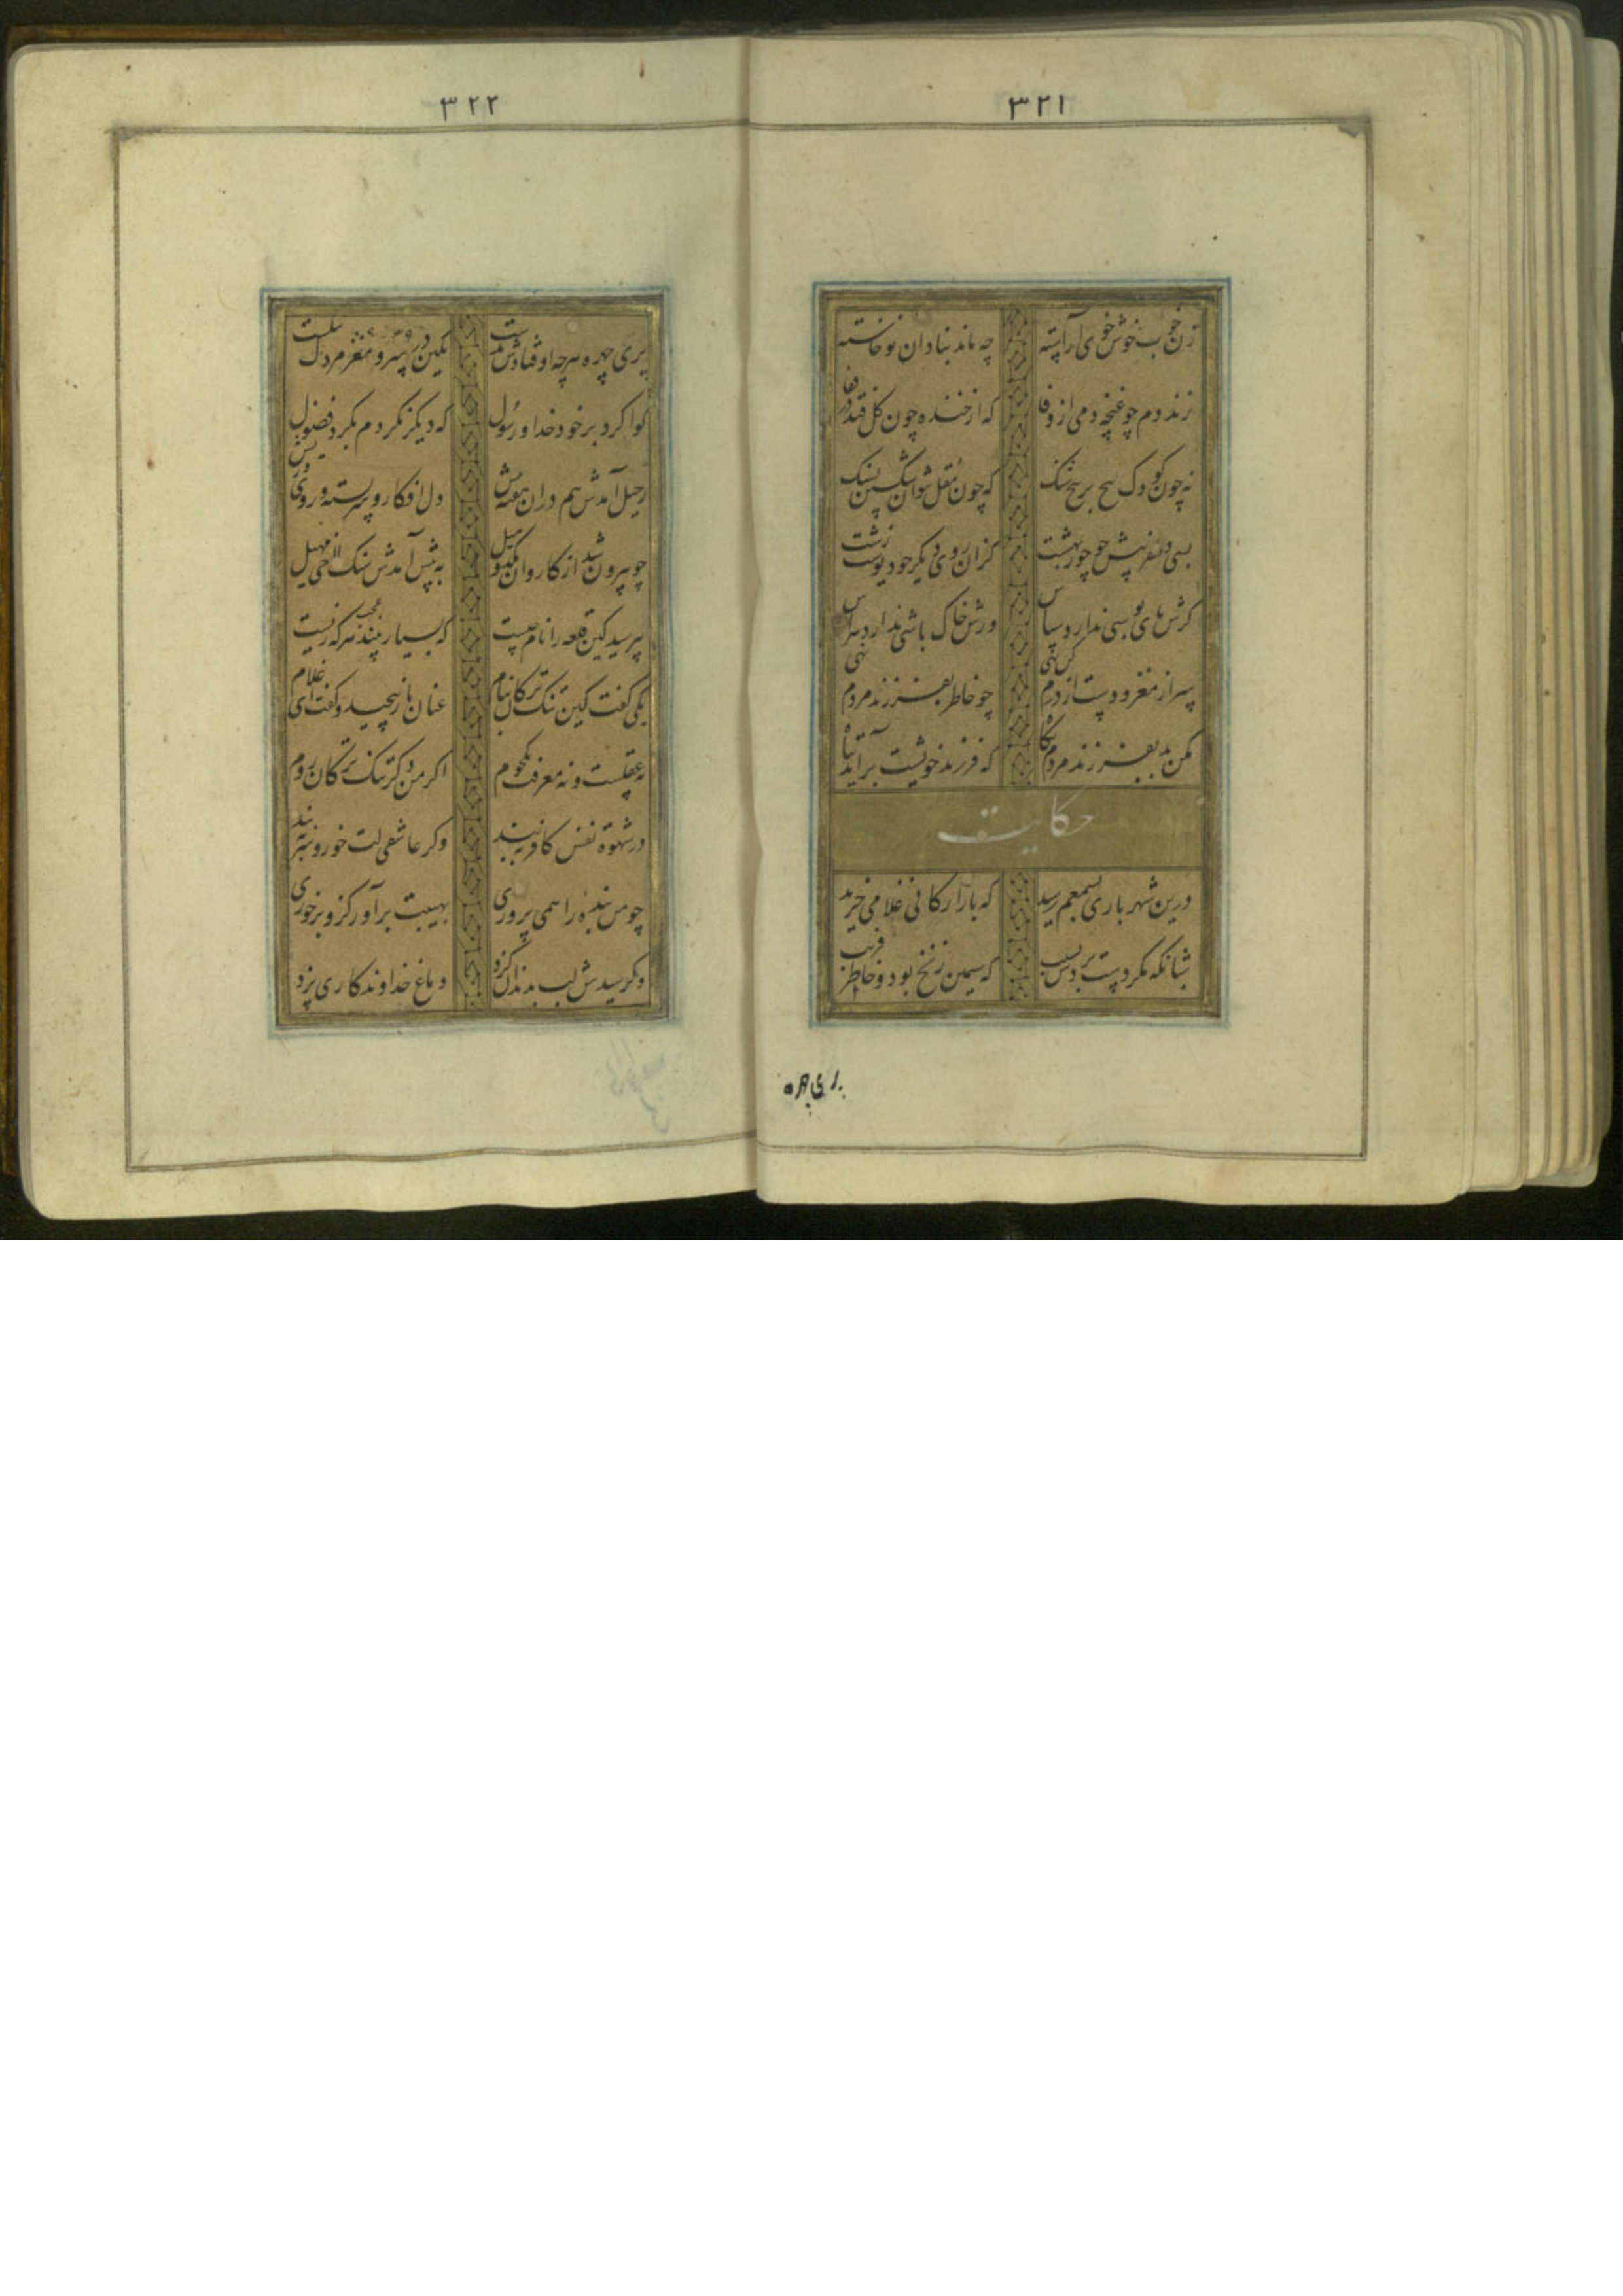 ۳۲۱
زن خوب خوش خوی آراسته چه ماند بنادان نوخاسته
زنددم چو غنچه دمی از وفا که از خنده چون کل فتد در قفا
نه چون کودک بیح بر پیح شنک که چون مقل نتوان شکستن بسنک
کزان روی دیکر جو دیوست زشت
کرش بای بوسی ندارد سپاس ورش خاک باشی نداردهراس
سر از مغز و دست از درم کن تهی چو خاطر بفرزند مردم نهی
مکن بد بفرزند مردم نکاه که فرزند خویشت برآید تباه
حکایت
درین شهر باری بسمعم رسید که بازارکانی غلامی خرید
شبانکه مکر دست بردش بسیب که سیمین زنخ بود و خاطر فریب
بری چهره
۳۲۲
بری چهره هرچه اوفتادش بدست یکین در سر و مغز مردم شکست
کوا کرد بر خود خدا و رسول که دیکر نکردم بکرد فضول
رحیل آمدش هم دران هفته بیش دل افکار و سربسته و روی ریش
چو بیرون شد از کازروان یکدو میل به پیش آمدش سنک لاخی مهیل
بپرسید کین قلعه را نام چیست که بسیار بیند عجب هرکه زیست
یکی کفت کین تنک ترکان بنام عنان باز پیچید و کفت ای غلام
نه عقلست و نه معرفت یکجوم اکر من دکر تنک ترکان روم
در شهوة نفس کافر ببند وکر عاشقی لت خور و سر ببند
چو مر بنده را همی پروری بهیبت برآور کزو برخوری
وکر سیدش لب بدندان کزد دماغ خداوندکاری پزد